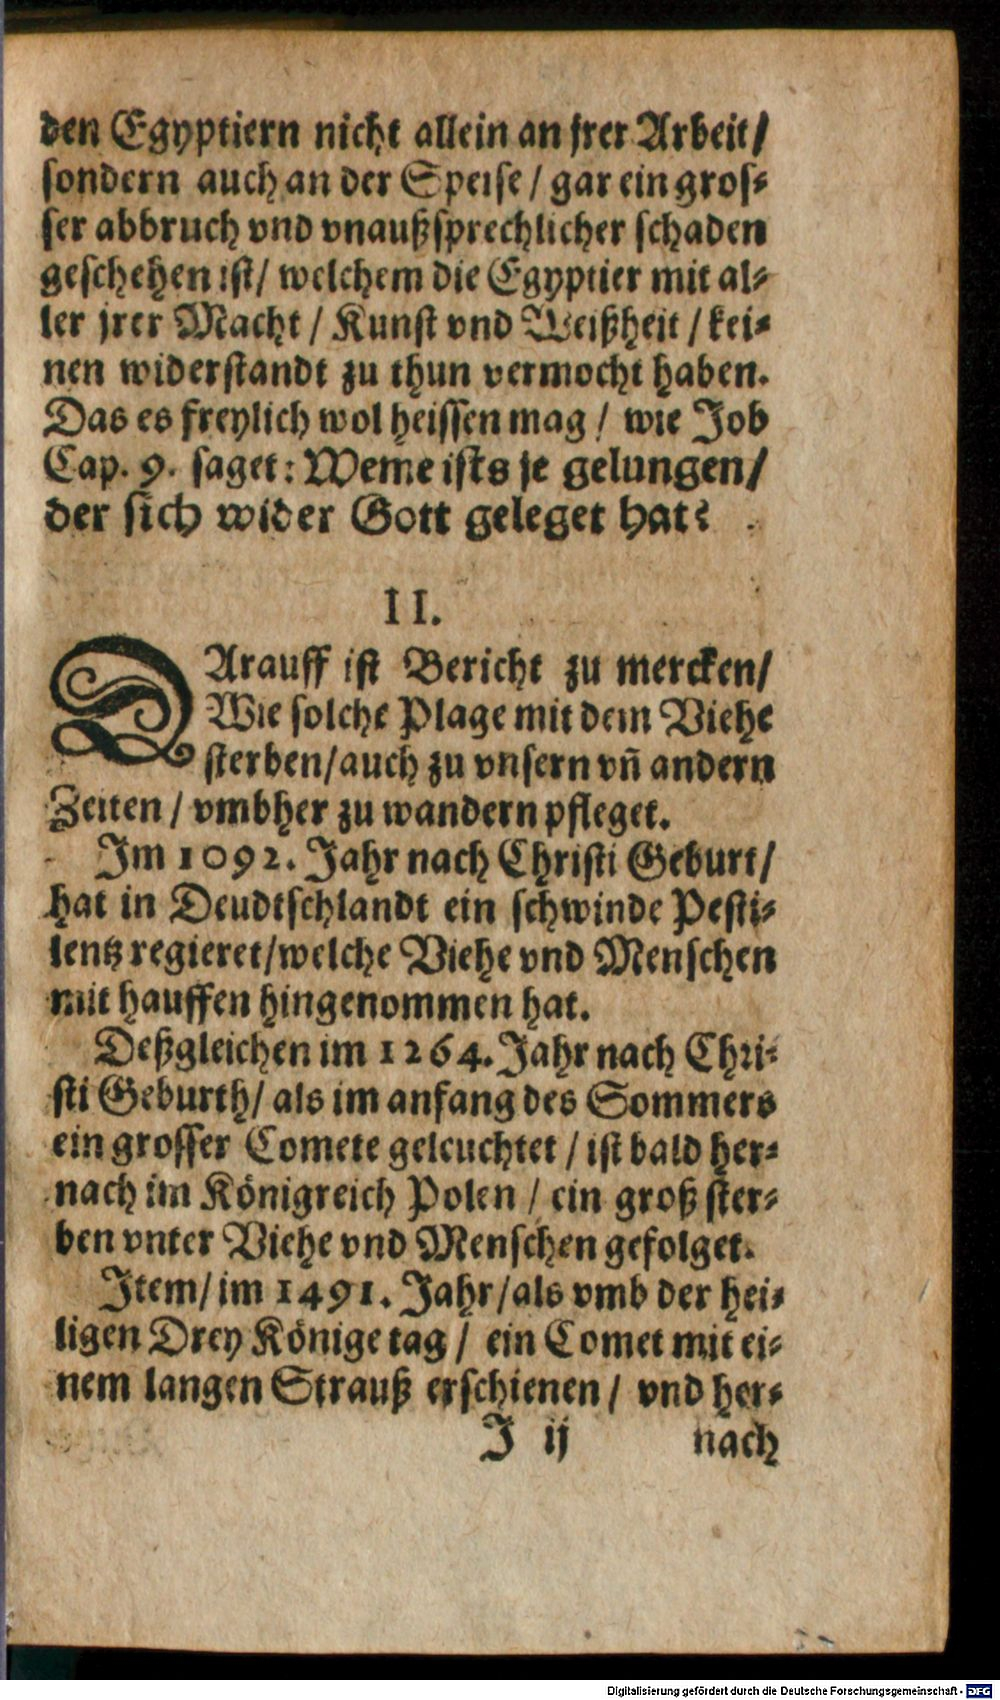 den Egyptiern nicht allein an jrer Arbeit/
sondern auch an der Speise / gar ein gros-
ser abbruch vnd vnaußsprechlicher schaden
geschehen ist/ welchem die Egyptier mit al-
ler jrer Macht / Kunst vnd Weißheit / kei-
nen widerstandt zu thun vermocht haben.
Das es freylich wol heissen mag / wie Job
Cap. 9. saget: Weme ists je gelungen/
der sich wider Gott geleget hat?
II.
DArauff ist Bericht zu mercken/
Wie solche Plage mit dem Viehe
sterben/auch zu vnsern vñ andern
Zeiten / vmbher zu wandern pfleget.
Im 1092. Jahr nach Christi Geburt/
hat in Deudtschlandt ein schwinde Pesti-
lentz regieret/welche Viehe vnd Menschen
mit hauffen hingenommen hat.
Deßgleichen im 1264. Jahr nach Chri-
sti Geburth/ als im anfang des Sommers
ein grosser Comete geleuchtet / ist bald her-
nach im Königreich Polen / ein groß ster-
ben vnter Viehe vnd Menschen gefolget.
Item/im 1491. Jahr/als vmb der hei-
ligen Drey Könige tag / ein Comet mit ei-
nem langen Strauß erschienen / vnd her-
J ij nach
Digitalisierung gefördert durch die Deutsche Forschungsgemeinschaft - DFG